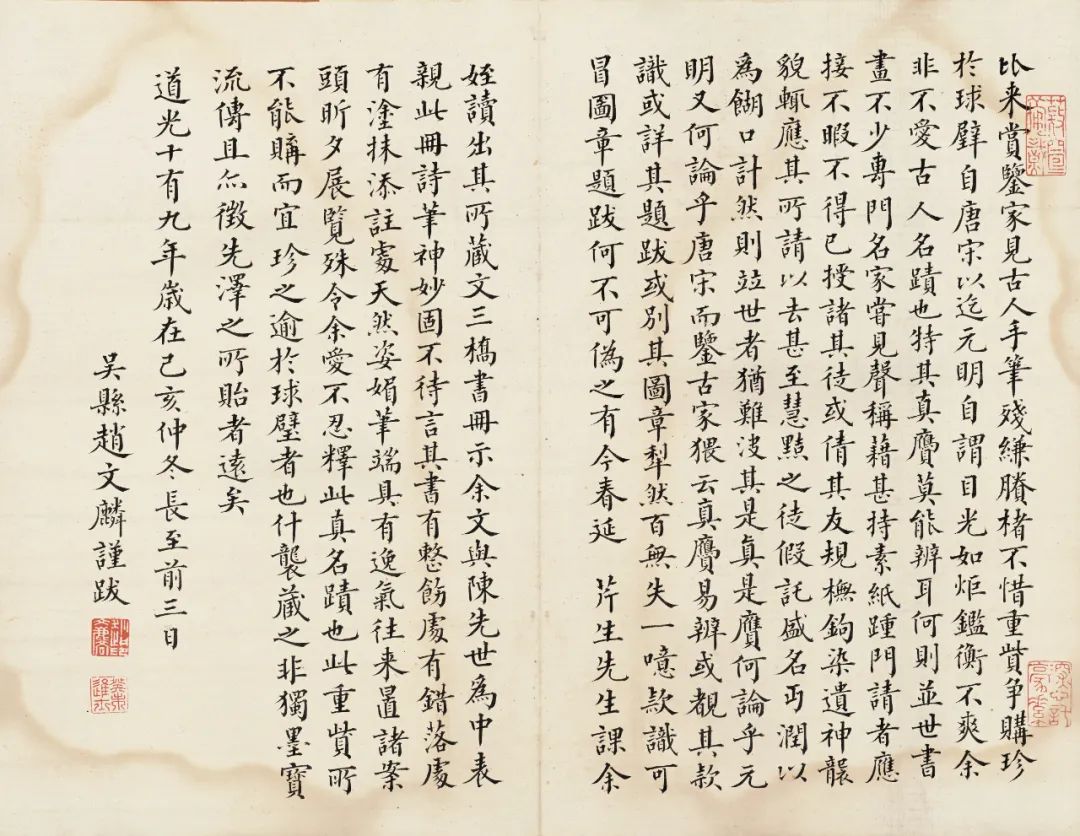 比来賞鑒家見古人手筆殘縑賸楮不惜重貲争購珍
於球璧自唐宋以迄元明自謂目光如炬鑑衡不爽余
非不愛古人名蹟也特其真贗莫能辨耳何則並世書
畫不少專門名家嘗見聲稱藉甚持素紙踵門請者應
接不暇不得已授諸其徒或倩其友規橅鉤染遺神襲
貌輒應其所請以去甚至慧黠之徒假託盛名丐潤以
為餬口計然則竝世者猶難決其是真是贗何論乎元
明又何論乎唐宋而鑒古家猥云真贗易辨或覩其款
識或詳其題跋或別其圖章犁然百無失一噫款識可
冒圖章題跋何不可偽之有今春延 芹生先生課余
姪讀出其所藏文三橋書冊示余文與陳先世為中表
親此冊詩筆神妙固不待言其書有整飭處有錯落處
有塗抹添註處天然姿媚筆端具有逸氣往来置諸案
頭昕夕展覽殊令余愛不忍釋此真名蹟也此重貲所
不能購而宜珍之逾於球璧者也什襲藏之非獨墨寶
流傳且以徵先澤之所貽者遠矣
道光十有九年歲在己亥仲冬長至前三日
吳縣趙文麟謹跋